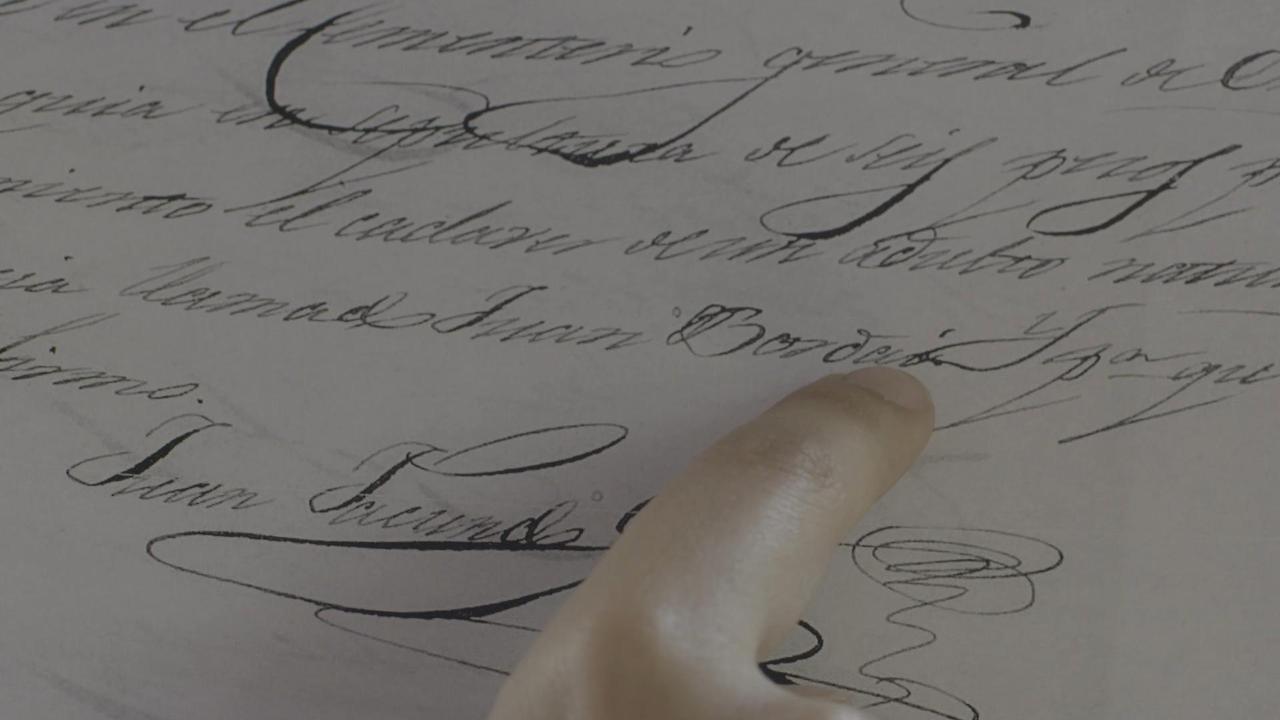 en el Cementerio general de
quia en sepultura de seis pesos
miento el cadaver de un adulto natu
llamado Juan Bordas Y pa que
firmo.
Juan Facundo